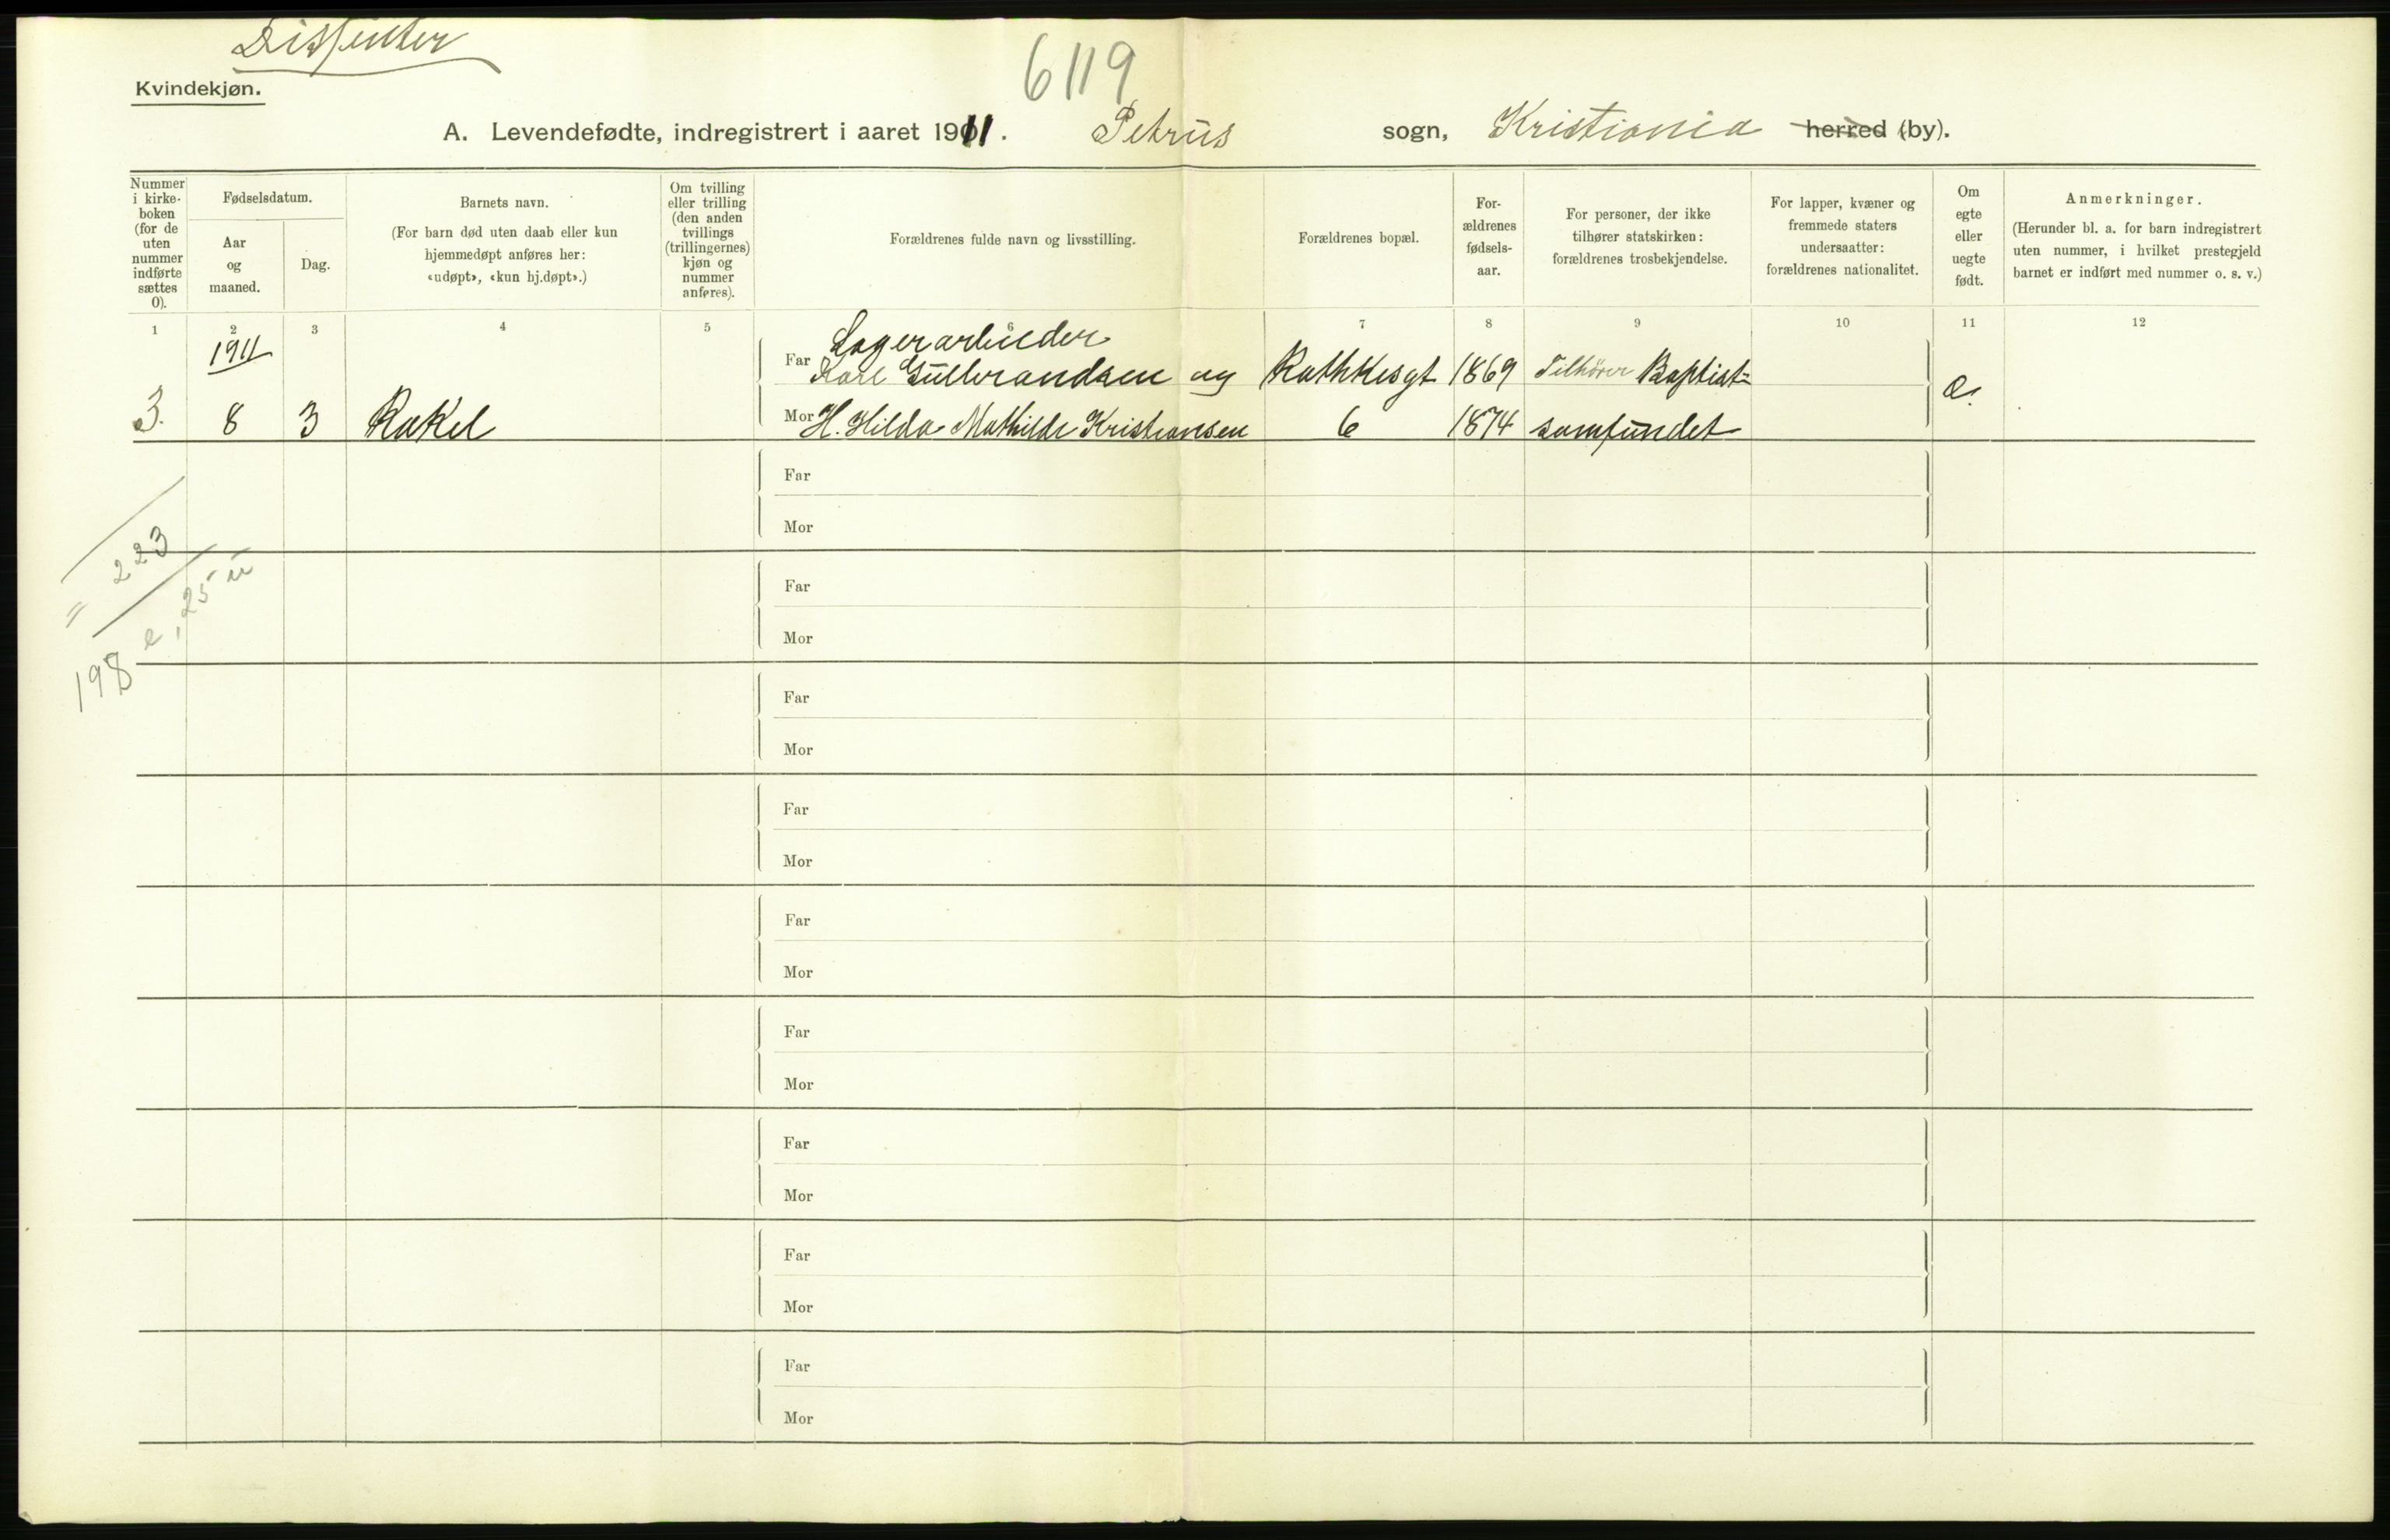 Dissenter
6119
Kvindekjøn.
A. Levendefødte, indregistrert i aaret 1911. Petrus sogn, Kristiania herred (by).
Nummer i kirkeboken (for de uten nummer indførte sættes 0).
Fødselsdatum.
Aar og maaned.
Dag.
Barnets navn.
(For barn død uten daab eller kun hjemmedøpt anføres her: «udøpt», «kun hj.døpt».)
Om tvilling eller trilling (den anden tvillings (trillingernes) kjøn og nummer anføres).
Forældrenes fulde navn og livsstilling.
Forældrenes bopæl.
For-
ældrenes
fødsels-
aar.
For personer, der ikke
tilhører statskirken:
forældrenes trosbekjendelse.
For lapper, kvæner og
fremmede staters
undersaatter:
forældrenes nationalitet.
Om egte eller uegte født.
Anmerkninger.
(Herunder bl. a. for barn indregistrert
uten nummer, i hvilket prestegjeld
barnet er indført med nummer o. s. v.)
1 2 3 4 5 6 7 8 9 10 11 12
1911 Lagerarbeider
Far Karl Gulbrandsen og Rathkesgt 1869 Tilhører Baptist=
3. 8 3 Rakel Mor H. Hilda Mathilde Kristiansen 6 1874 samfundet e.
Far
Mor
= 223
198 e, 25 u
Far
Mor
Far
Mor
Far
Mor
Far
Mor
Far
Mor
Far
Mor
Far
Mor
Far
Mor